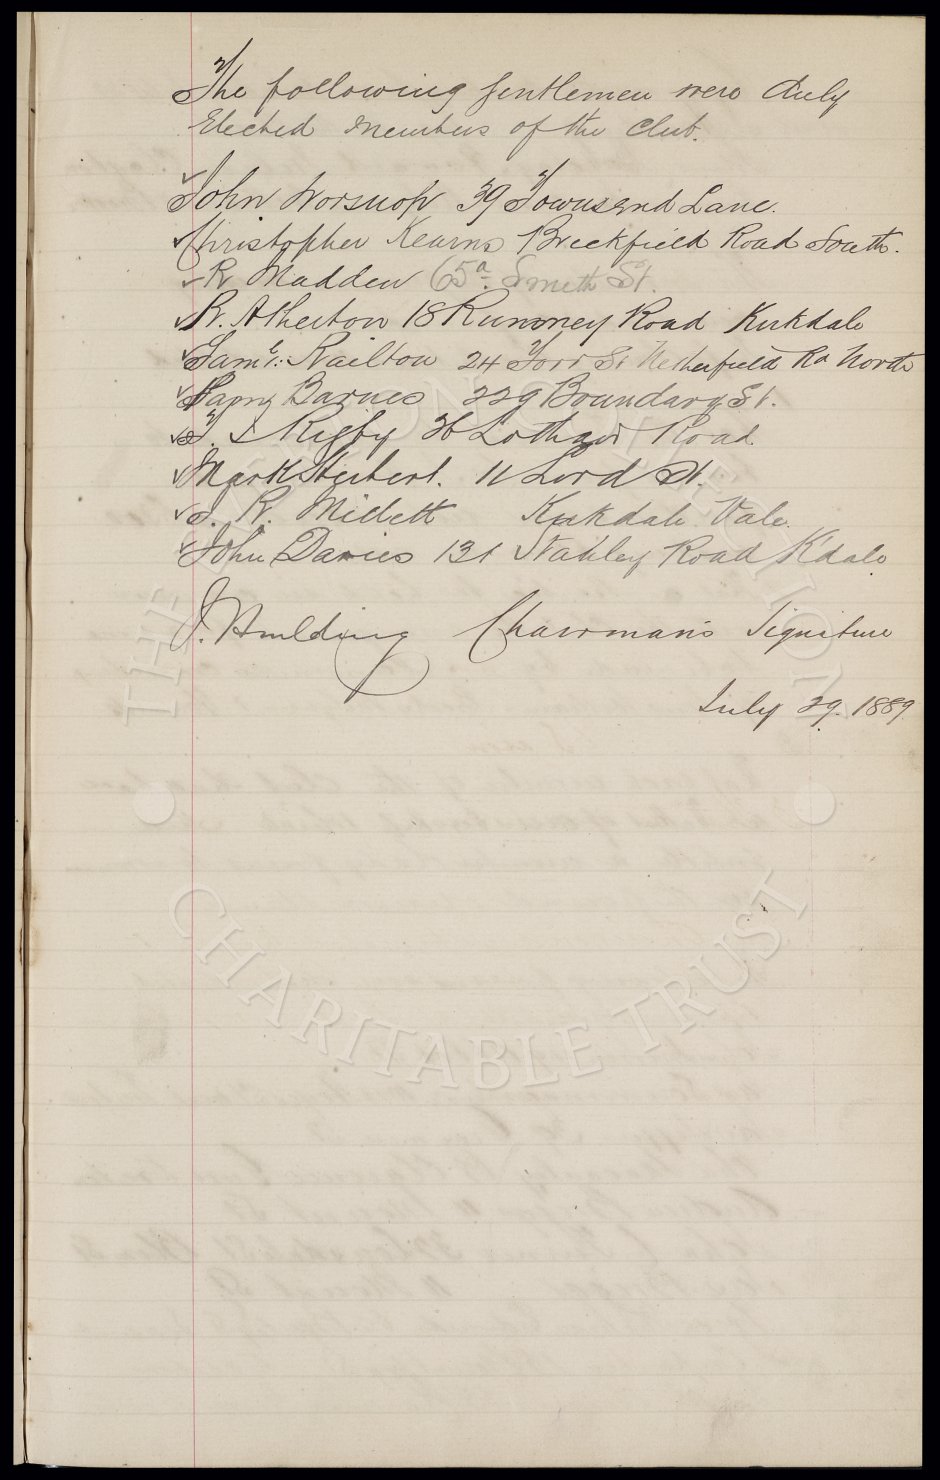 The following Gentlemen were duly
Elected members of the Club.
John Worsnop 39 Townsend Lane.
Christopher Kearns Breckfield Road South.
R Madden 65a Smeth St.
R. Atherton 18 Rumney Road Kirkdale
Saml: Railton 24 St Netherfield Rd North
Barnes 229 Boundary St.
T. S Rigby 36 Lothair Road
Mark Herbert. 11 Lord St.
J. R. Millett Kirkdale Vale.
John Davies 131 Stanley Road K'dale
J. Houlding Chairman's Signature
July 29. 1889
THE EVERTON COLLECTION
CHARITABLE TRUST